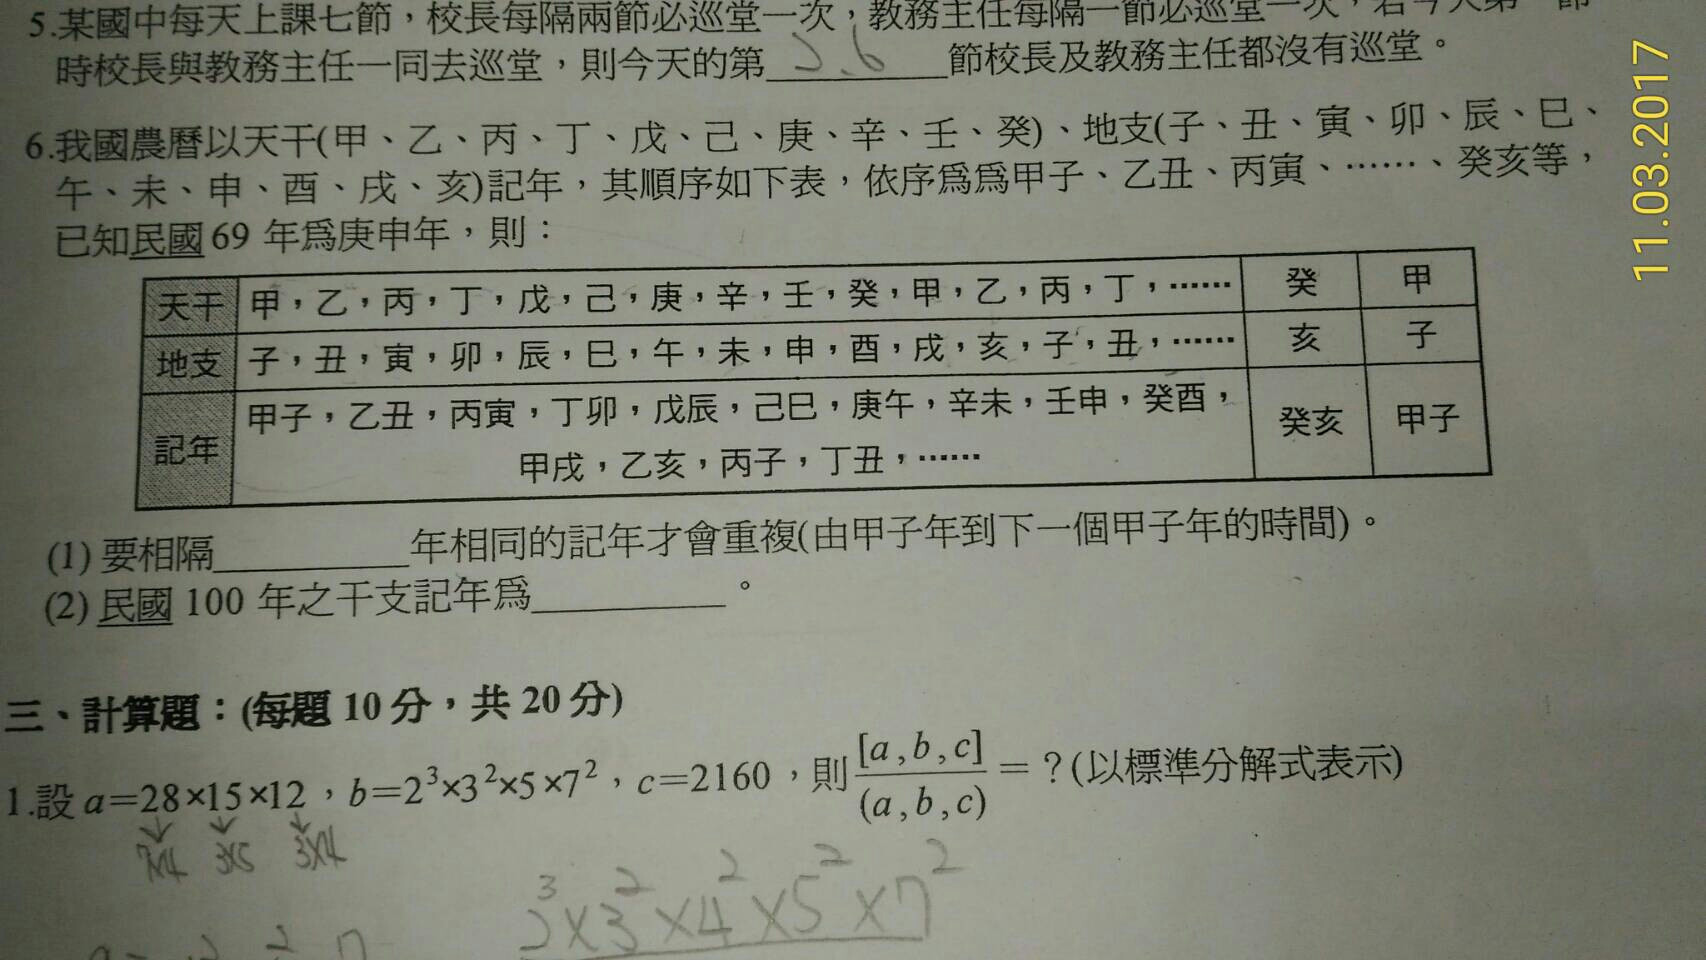 5.某國中每天上課七節，校長每隔兩節必巡堂一次，教務主任每隔一節必巡堂一次，若今天第一節
時校長與教務主任一同去巡堂，則今天的第 2.6 節校長及教務主任都沒有巡堂。
6.我國農曆以天干(甲、乙、丙、丁、戊、己、庚、辛、壬、癸)、地支(子、丑、寅、卯、辰、巳、
午、未、申、酉、戌、亥)記年，其順序如下表，依序爲爲甲子、乙丑、丙寅、……、癸亥等，
已知民國 69 年爲庚申年，則：
天干 甲，乙，丙，丁，戊，己，庚，辛，壬，癸，甲，乙，丙，丁，…… 癸 甲
地支 子，丑，寅，卯，辰，巳，午，未，申，酉，戌，亥，子，丑，…… 亥 子
記年 甲子，乙丑，丙寅，丁卯，戊辰，己巳，庚午，辛未，壬申，癸酉，
甲戌，乙亥，丙子，丁丑，…… 癸亥 甲子
(1) 要相隔__________年相同的記年才會重複(由甲子年到下一個甲子年的時間)。
(2) 民國 100 年之干支記年爲__________。
三、計算題：(每題 10 分，共 20 分)
1.設 a=28×15×12，b=2³×3²×5×7²，c=2160，則 [a,b,c]/(a,b,c) = ？(以標準分解式表示)
7×4 3×5 3×4
2³×3²×4²×5²×7²
11.03.2017